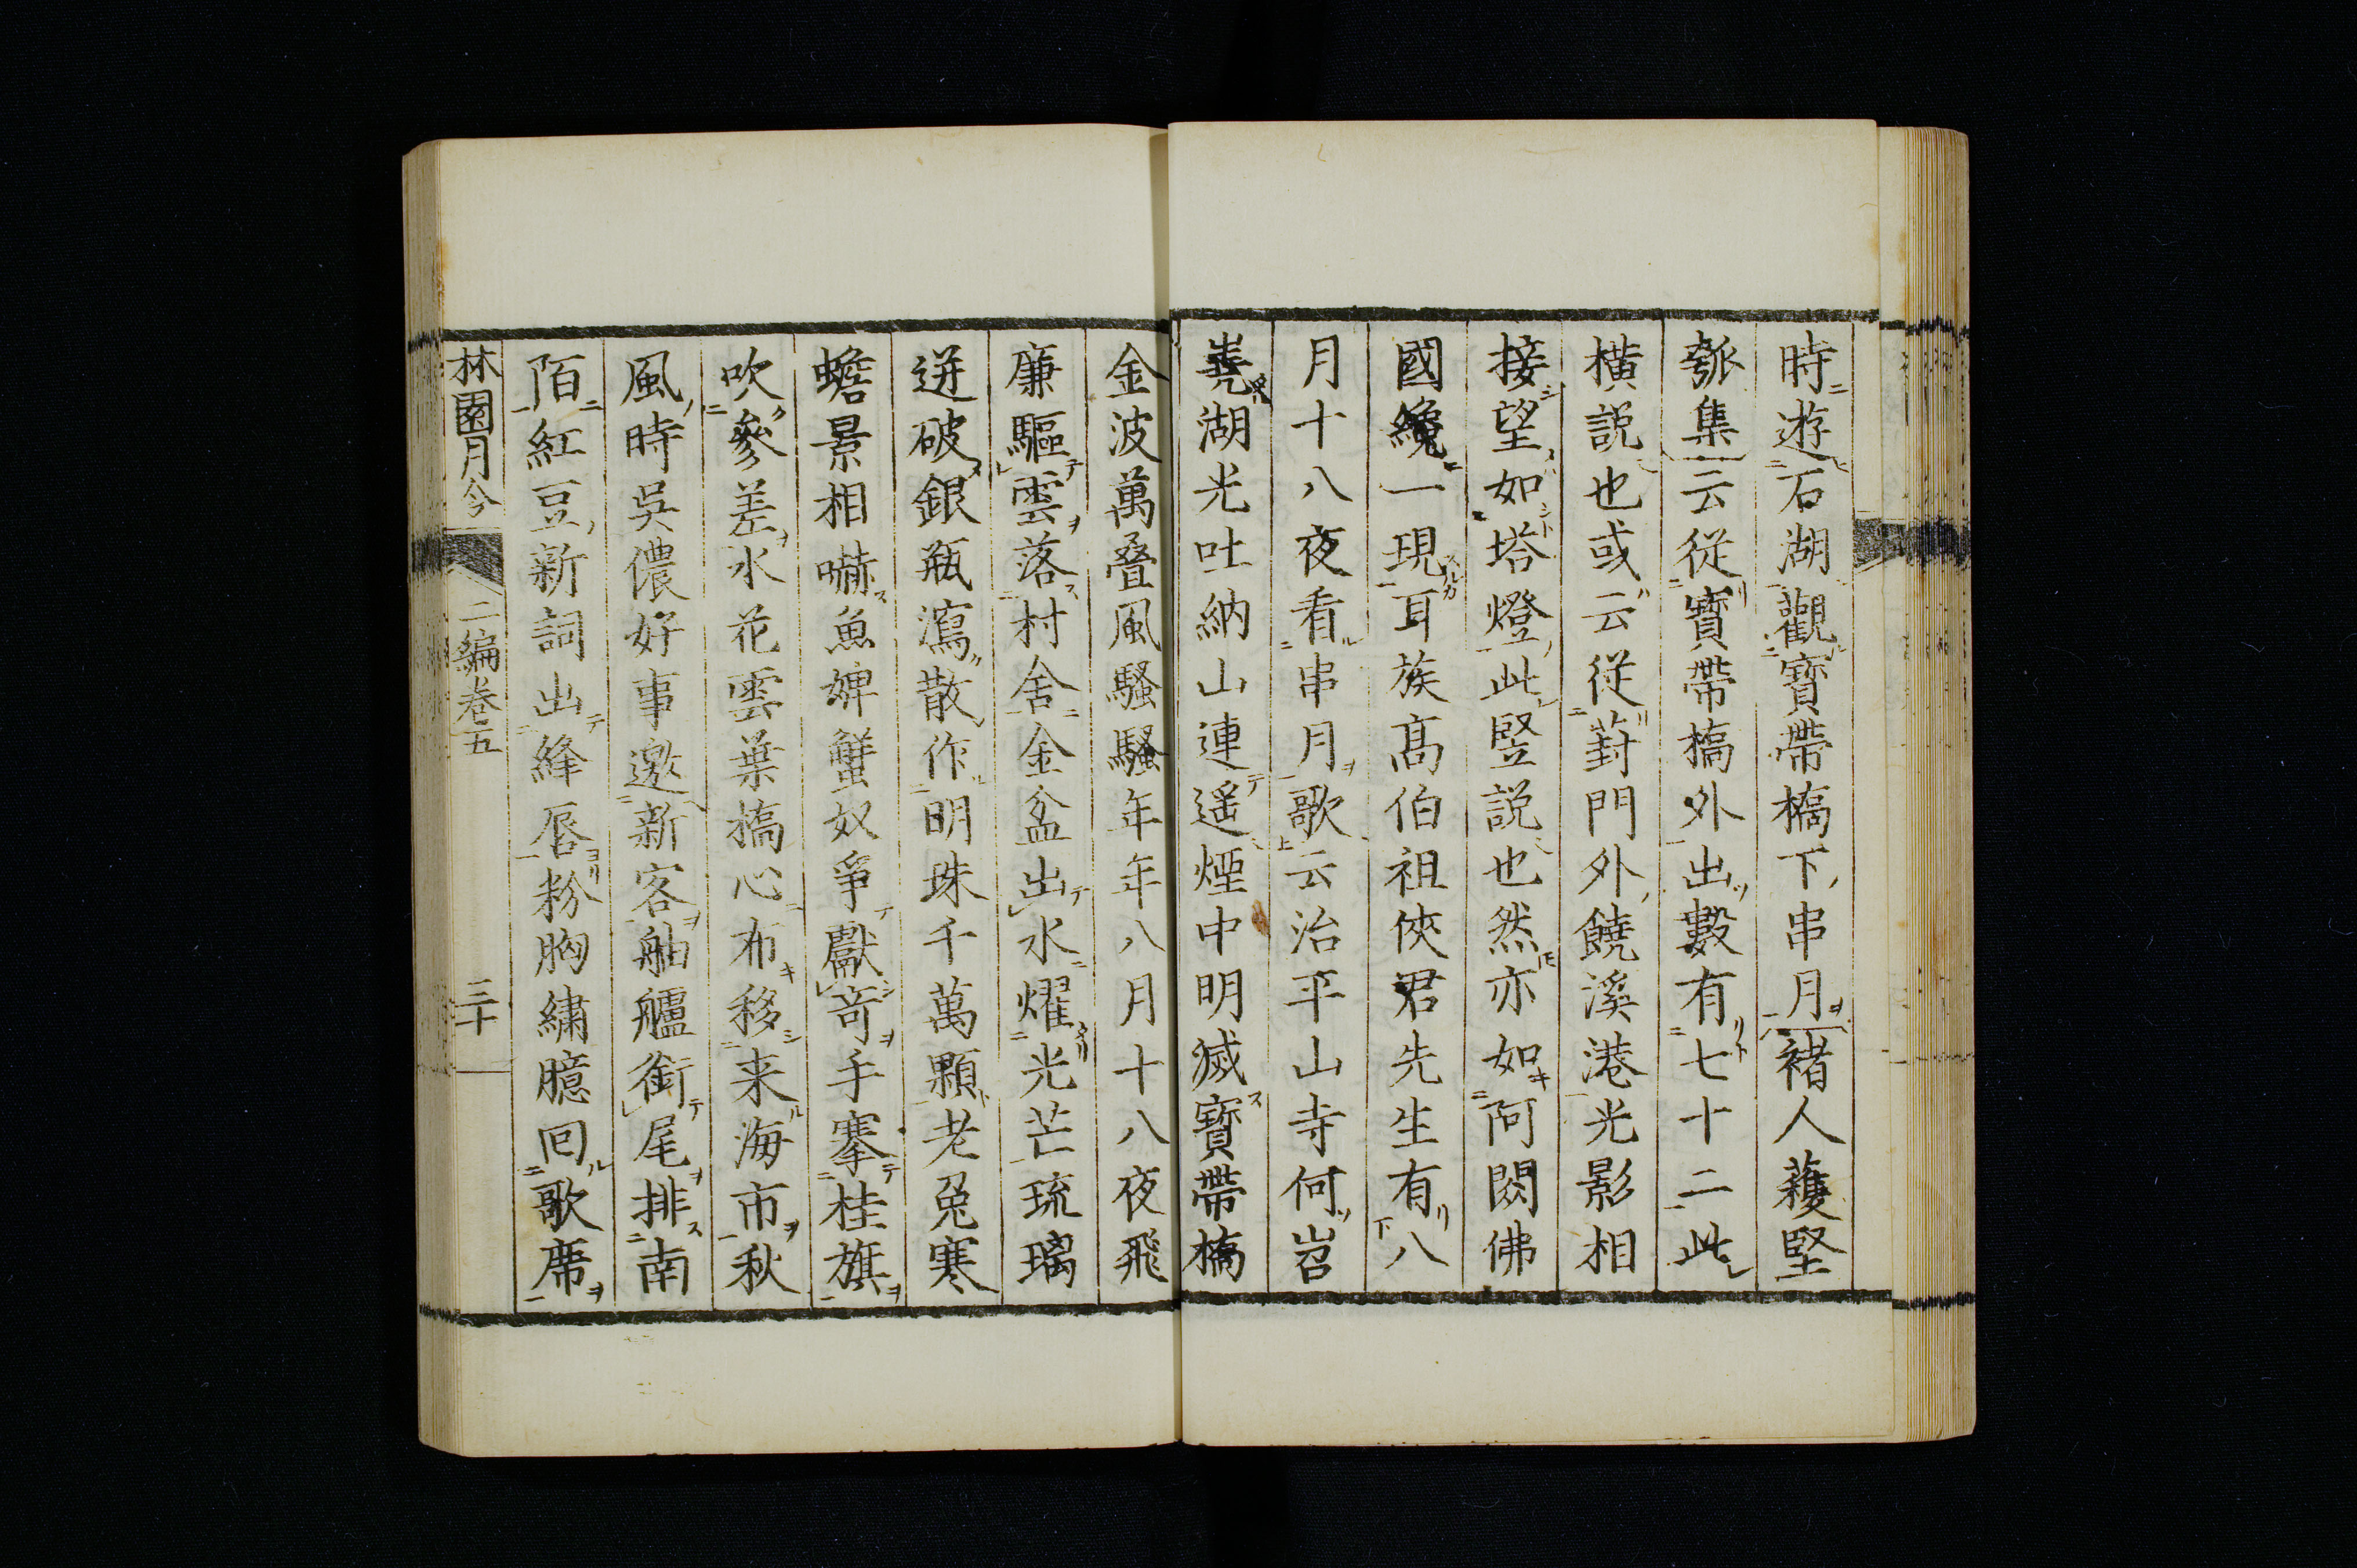 時遊石湖觀寶帶橋下串月褚人蘐堅
瓠集云從寶帶橋外出數有七十二此
橫説也或云從葑門外饒溪港光影相
接望如塔燈此竪説也然亦如阿閦佛
國纔一現耳族髙伯祖俠君先生有八
月十八夜看串月歌云治平山寺何岧
嶤湖光吐納山連遥煙中明滅寶帶橋
金波萬疊風騷騷年年八月十八夜飛
廉驅雲落村舍金盆出水燿光芒琉璃
迸破銀瓶瀉散作明珠千萬顆老兔寒
蟾景相嚇魚婢蟹奴爭獻竒手搴桂旗
吹參差水花雲葉橋心布移来海市秋
風時吳儂好事邀新客舳艫銜尾排南
陌紅豆新詞出絳唇粉胸繡臆回歌席
林園月令 二編卷五 三十